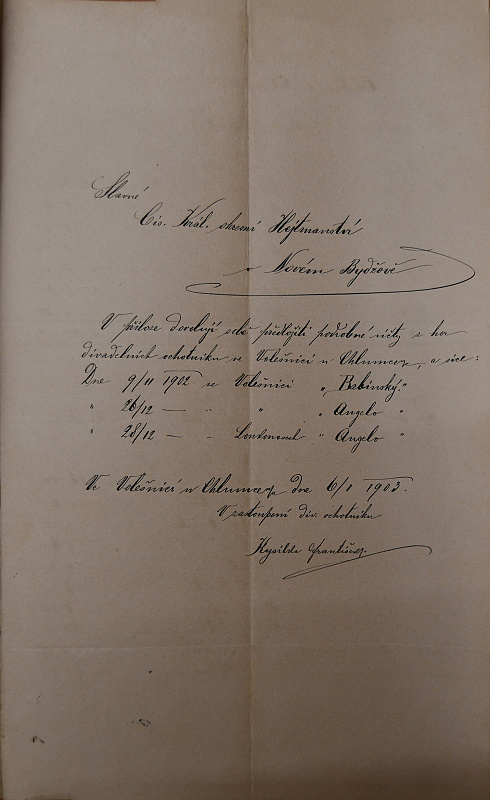 Slavné
Cís. Král. okresní Hejtmanství
v Novém Bydžově
V příloze dovoluji sobě předložiti podrobné účty z her
divadelních ochotníku ve Volešnici u Chlumce, a sice:
Dne 9/11 1902 ve Volešnici „ Babinský."
" 26/12 — " " „ Angelo "
" 28/12 — " " Angelo "
Ve Volešnici u Chlumce dne 6/1 1903.
V zastoupení div. ochotníku
Kysilda František.